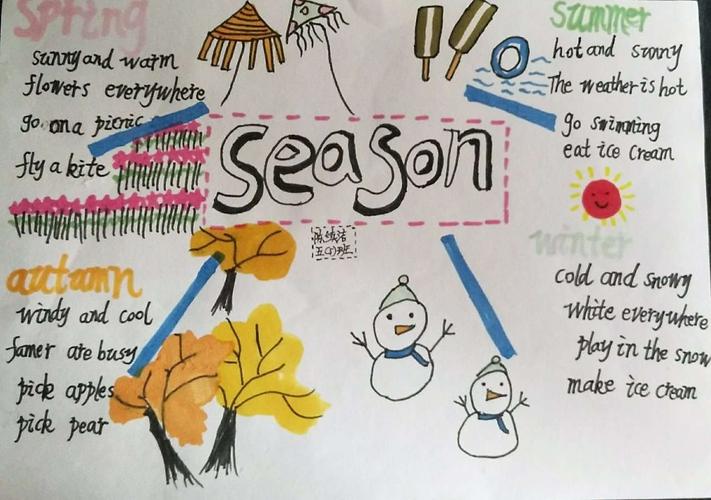 Spring
sunny and warm
flowers everywhere
go on a picnic
fly a kite
summer
hot and sunny
The weather is hot
go swimming
eat ice cream
season
autumn
windy and cool
famer are busy
pick apples
pick pear
winter
cold and snowy
white everywhere
play in the snow
make ice cream